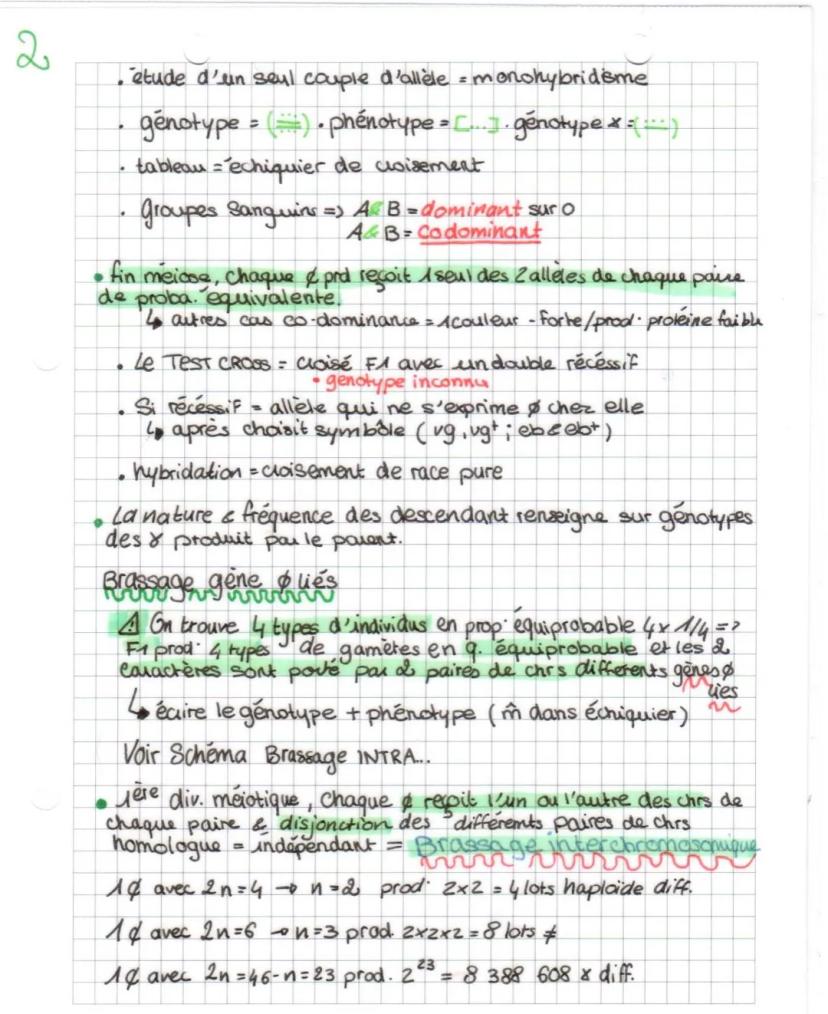 2
. étude d'un seul couple d'allèle = monohybridisme
. génotype = (⩶) . phénotype = [...] . génotype ɤ = (...)
. tableau = échiquier de croisement
. Groupes Sanguins => A & B = dominant sur O
A & B = codominant
• fin méiose, chaque ¢ prd reçoit 1 seul des 2 allèles de chaque paire
de proba. équivalente.
↳ autres cas co-dominance = 1 couleur - forte/prod. protéine faible
. Le TEST CROSS = croisé F1 avec un double récéssif
• genotype inconnu
. Si récéssif = allèle qui ne s'exprime ø chez elle
↳ après choisit symbôle ( vg, vg+ ; eb & eb+ )
. hybridation = croisement de race pure
• La nature & fréquence des descendant renseigne sur génotypes
des ɤ produit par le parent.
Brassage gène ø liés
⚠ On trouve 4 types d'individus en prop. équiprobable 4 x 1/4 =>
F1 prod. 4 types de gamètes en q. équiprobable et les 2
caractères sont porté par 2 paires de chrs differents gènes ø
liés
↳ écrire le génotype + phénotype ( m̂ dans échiquier )
Voir Schéma Brassage INTRA...
• 1ère div. méiotique, chaque ¢ reçoit l'un ou l'autre des chrs de
chaque paire & disjonction des différents paires de chrs
homologue = indépendant = Brassage interchromosomique
1 ¢ avec 2n=4 → n=2 prod. 2x2 = 4 lots haploïde diff.
1 ¢ avec 2n=6 → n=3 prod. 2x2x2 = 8 lots ≠
1 ¢ avec 2n=46 - n=23 prod. 2²³ = 8 388 608 ɤ diff.